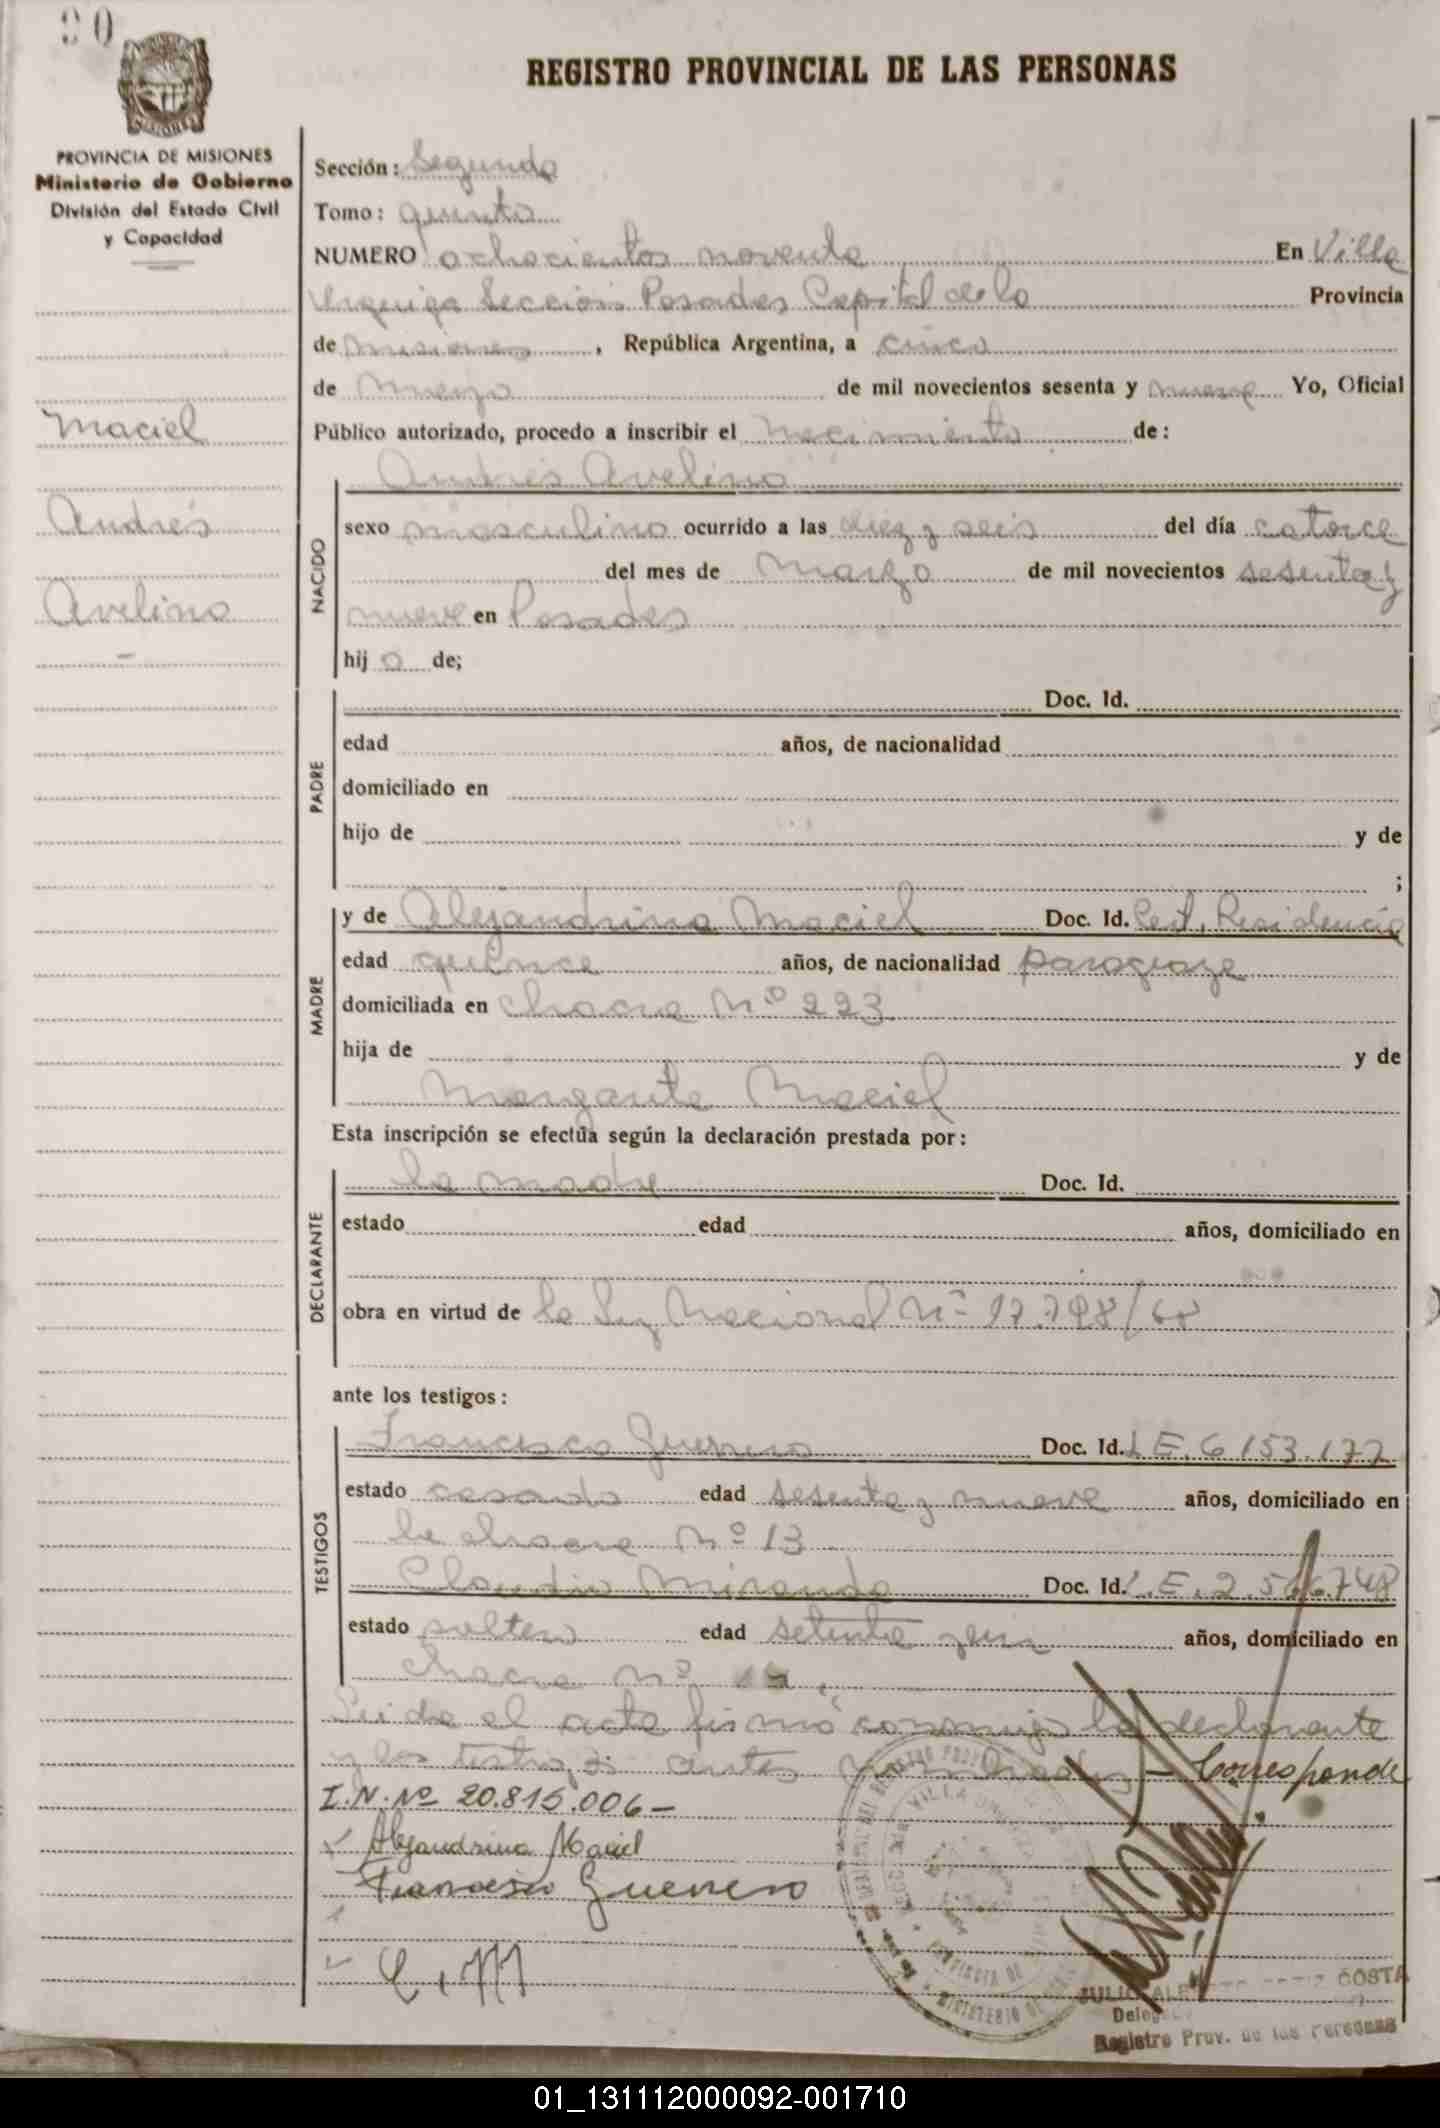 90
REGISTRO PROVINCIAL DE LAS PERSONAS
MISIONES
PROVINCIA DE MISIONES
Ministerio de Gobierno
División del Estado Civil
y Capacidad
Maciel
Andrés
Avelino
Sección: Segunda
Tomo: quinto
NUMERO ochocientos noventa En Villa
Urquiza Sección Posadas Capital de la Provincia
de Misiones, República Argentina, a cinco
de mayo de mil novecientos sesenta y nueve Yo, Oficial
Público autorizado, procedo a inscribir el nacimiento de:
NACIDO
Andrés Avelino
sexo masculino ocurrido a las diez y seis del día catorce
del mes de Marzo de mil novecientos sesenta y
nueve en Posadas
hijo de;
PADRE
Doc. Id.
edad años, de nacionalidad
domiciliado en
hijo de y de
;
MADRE
y de Alejandrina Maciel Doc. Id. Cert. Residencia
edad quince años, de nacionalidad paraguaya
domiciliada en Chacra Nº 223
hija de y de
Margarita Maciel
Esta inscripción se efectúa según la declaración prestada por:
DECLARANTE
la madre Doc. Id.
estado edad años, domiciliado en
obra en virtud de la Ley Nacional Nº 17.798/68
ante los testigos:
TESTIGOS
Francisco Guerrero Doc. Id. L.E. 6.153.177
estado casado edad sesenta y nueve años, domiciliado en
la chacra Nº 13
Claudio Miranda Doc. Id. L.E. 2.566.748
estado soltero edad setenta y un años, domiciliado en
Chacra Nº
Leída el acta firmó conmigo la declarante
y los testigos antes nombrados - Corresponde
I.N. Nº 20.815.006 -
Alejandrina Maciel
Francisco Guerrero
C. M
VILLA
PROVINCIA DE
MINISTERIO DE
JULIO COSTA
Delegado
Registro Prov. de las Personas
01_131112000092-001710